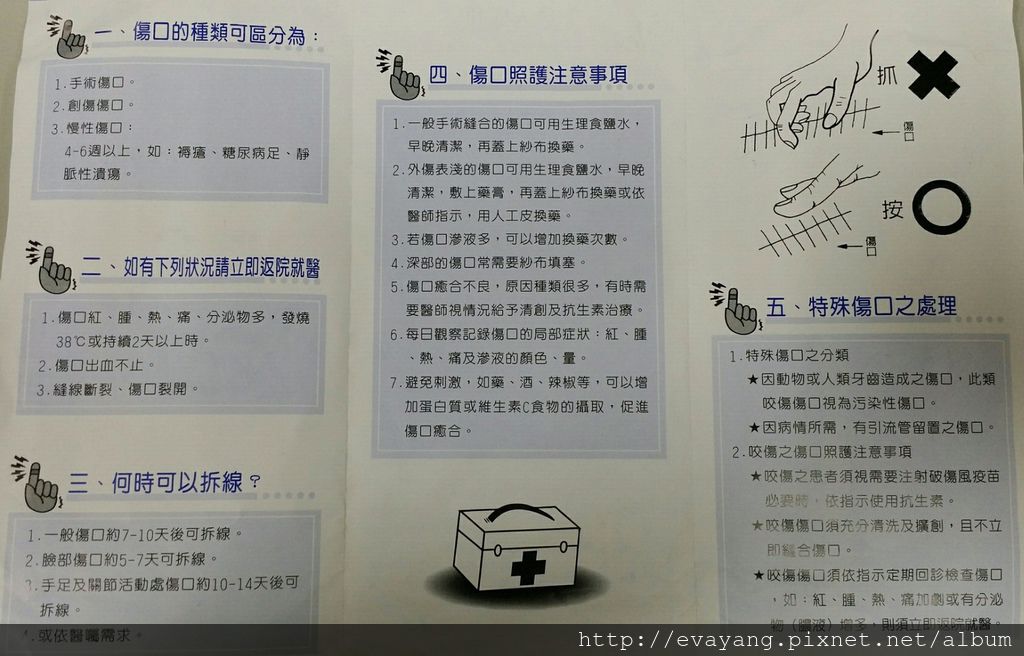 一、傷口的種類可區分為：
1.手術傷口。
2.創傷傷口。
3.慢性傷口：
4-6週以上，如：褥瘡、糖尿病足、靜
脈性潰瘍。
二、如有下列狀況請立即返院就醫
1.傷口紅、腫、熱、痛、分泌物多，發燒
38℃或持續2天以上時。
2.傷口出血不止。
3.縫線斷裂、傷口裂開。
三、何時可以拆線？
1.一般傷口約7-10天後可拆線。
2.臉部傷口約5-7天可拆線。
3.手足及關節活動處傷口約10-14天後可
拆線。
4.或依醫囑需求。
四、傷口照護注意事項
1.一般手術縫合的傷口可用生理食鹽水，
早晚清潔，再蓋上紗布換藥。
2.外傷表淺的傷口可用生理食鹽水，早晚
清潔，敷上藥膏，再蓋上紗布換藥或依
醫師指示，用人工皮換藥。
3.若傷口滲液多，可以增加換藥次數。
4.深部的傷口常需要紗布填塞。
5.傷口癒合不良，原因種類很多，有時需
要醫師視情況給予清創及抗生素治療。
6.每日觀察記錄傷口的局部症狀：紅、腫
、熱、痛及滲液的顏色、量。
7.避免刺激，如藥、酒、辣椒等，可以增
加蛋白質或維生素C食物的攝取，促進
傷口癒合。
抓
傷口
按
傷口
五、特殊傷口之處理
1.特殊傷口之分類
★因動物或人類牙齒造成之傷口，此類
咬傷傷口視為污染性傷口。
★因病情所需，有引流管留置之傷口。
2.咬傷之傷口照護注意事項
★咬傷之患者須視需要注射破傷風疫苗
必要時，依指示使用抗生素。
★咬傷傷口須充分清洗及擴創，且不立
即縫合傷口。
★咬傷傷口須依指示定期回診檢查傷口
，如：紅、腫、熱、痛加劇或有分泌
物（膿液）增多，則須立即返院就醫。
http://evayang.pixnet.net/album